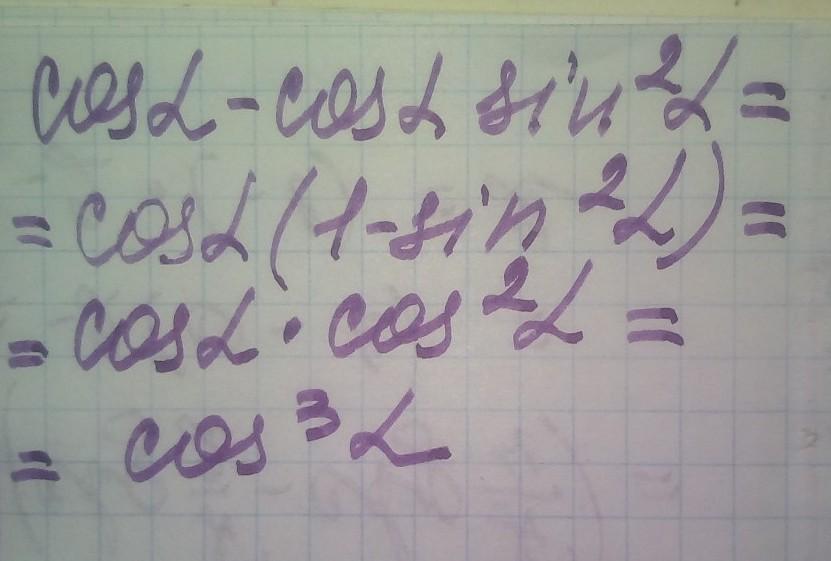 cosα - cosα sin²α =
= cosα(1 - sin²α) =
= cosα · cos²α =
= cos³α